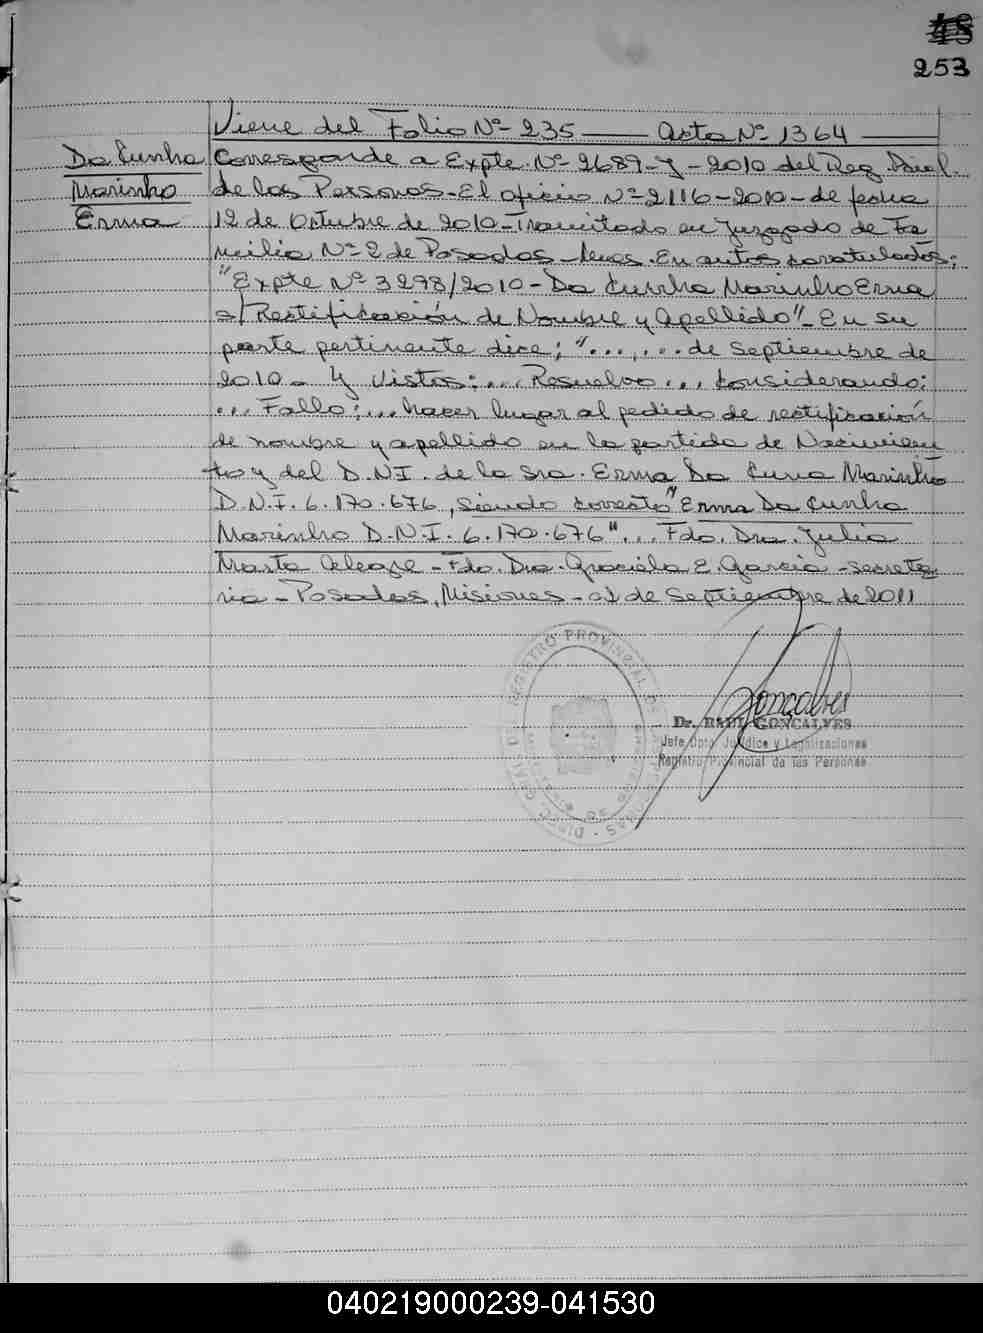 253
Viene del Folio Nº- 235 —— Acta Nº- 1364 ——
Da Cunha
Marinho
Erma
Corresponde a Expte. Nº- 2689-Y-2010 del Reg. Prov.
de las Personas - El oficio Nº- 2116-2010- de fecha
12 de Octubre de 2010 - Tramitado en Juzgado de Fa
milia Nº- 2 de Posadas - Mnes. En autos caratulados;
"Expte Nº 3298/2010 - Da Cunha Marinho Erma
s/ Rectificación de Nombre y Apellido" - En su
parte pertinente dice; "...,... de Septiembre de
2010 - Y Vistos: ... Resuelvo ... Considerando:
... Fallo: ... hacer lugar al pedido de rectificación
de nombre y apellido en la partida de Nacimien
to y del D.N.I. de la Sra. Erma Da Cuna Marinho
D.N.I. 6.170.676, siendo correcto "Erma Da Cunha
Marinho D.N.I. 6.170.676"... Fdo. Dra. Julia
Marta Alegre - Fdo. Dra. Graciela E. Garcia - secreta
ria - Posadas, Misiones - 01 de Septiembre de 2011
Gonçalves
Dr. RAUL GONCALVES
Jefe Dpto Jurídico y Legalizaciones
Registro Provincial de las Personas
DIREC. GRAL DE REGISTRO PROVINCIAL DE LAS PERSONAS
040219000239-041530